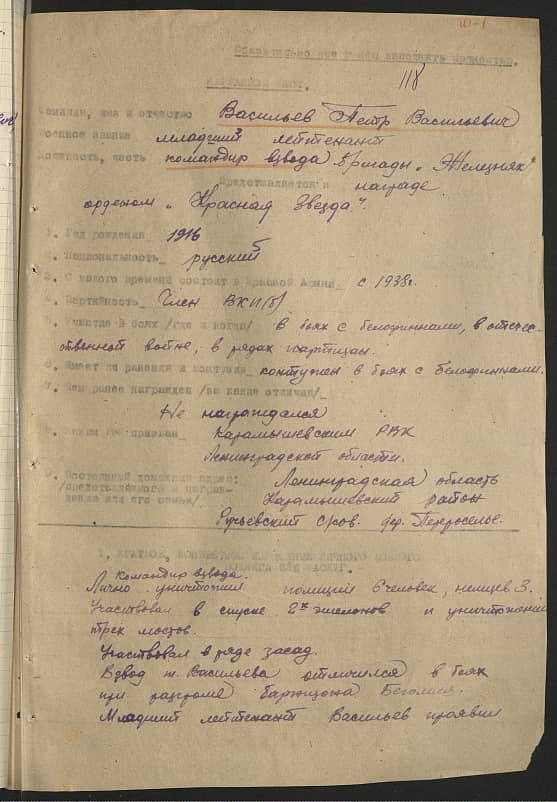 118
НАГРАДНОЙ ЛИСТ.
Фамилия, имя и отчество Васильев Петр Васильевич
Военное звание младший лейтенант
Должность, часть командир взвода бригады "Железняк"
Представляется к награде
орденом "Красная Звезда".
1. Год рождения 1916
2. Национальность русский
3. С какого времени состоит в Красной Армии с 1938г.
4. Партийность Член ВКП(б)
5. Участие в боях /где и когда/ В боях с белофиннами, в отече-
ственной войне, в рядах партизан.
6. Имеет ли ранения и контузии контужен в боях с белофиннами.
7. Чем ранее награжден /за какие отличия/
Не награждался
8. Каким РВК призван Карамышевским РВК
Ленинградской области.
9. Постоянный домашний адрес: Ленинградская область
/представляемого к награж- Карамышевский район
дению или его семьи/ с/сов. дер.
1. КРАТКОЕ, КОНКРЕТНОЕ ИЗЛОЖЕНИЕ ЛИЧНОГО БОЕВОГО
ПОДВИГА ИЛИ ЗАСЛУГ.
Командир взвода.
Лично уничтожил полиции 6 человек, немцев 3.
Участвовал в спуске 2х эшелонов и уничтожении
трех мостов.
Участвовал в ряде засад.
Взвод т. Васильева отличился в боях
при разгроме гарнизона Бегомля.
Младший лейтенант Васильев проявил